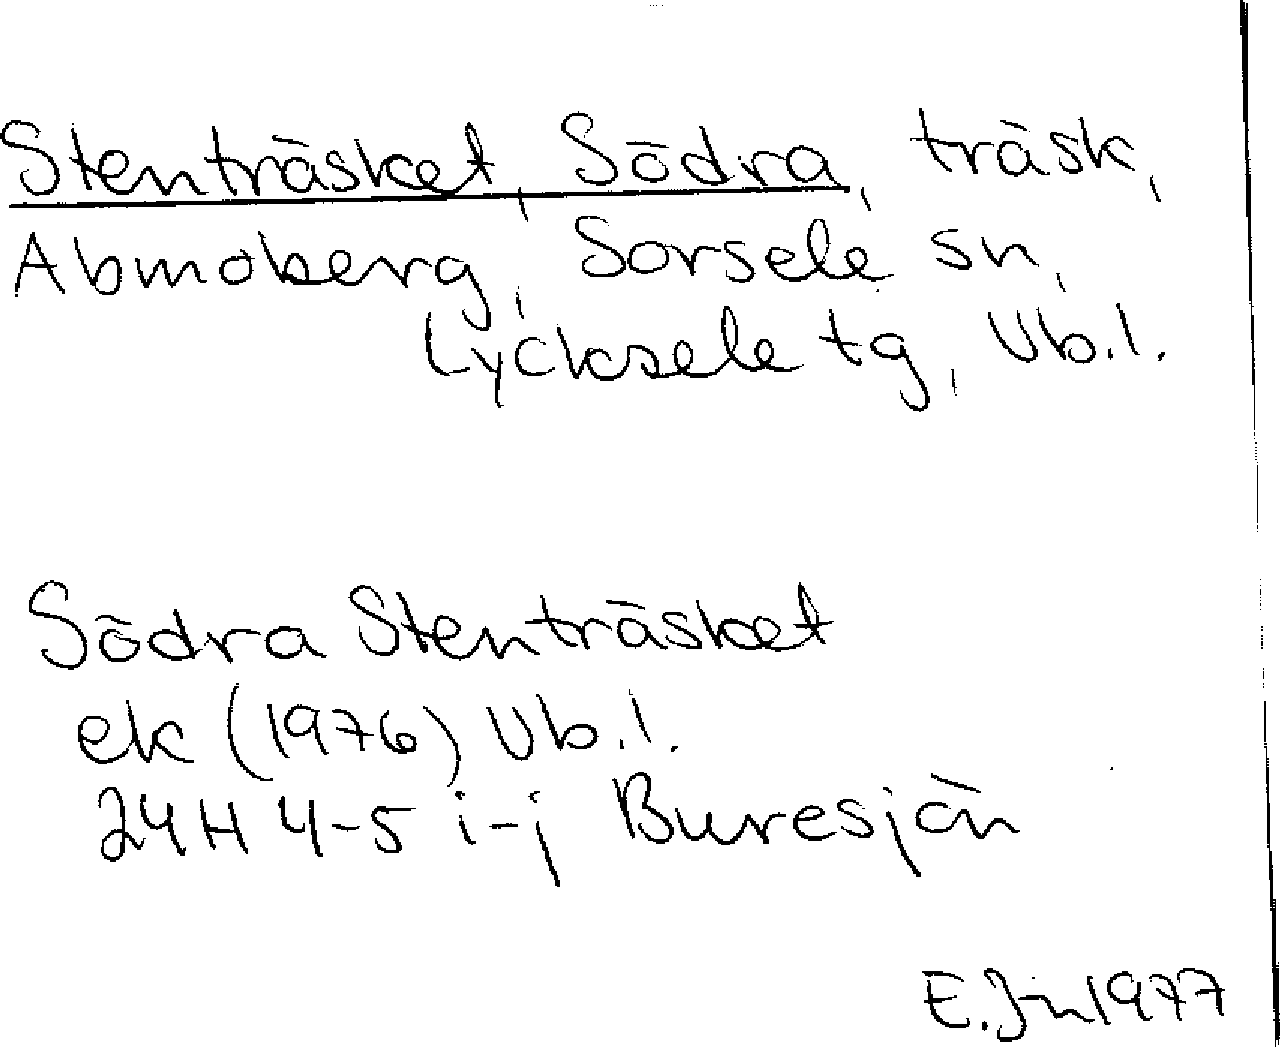 Stenträsket, Södra, träsk,
Abmoberg, Sorsele sn,
Lycksele tg, Vb.l.
Södra Stenträsket
ek (1976) Vb.l.
24H 4-5 i-j Buresjön
E. 1977